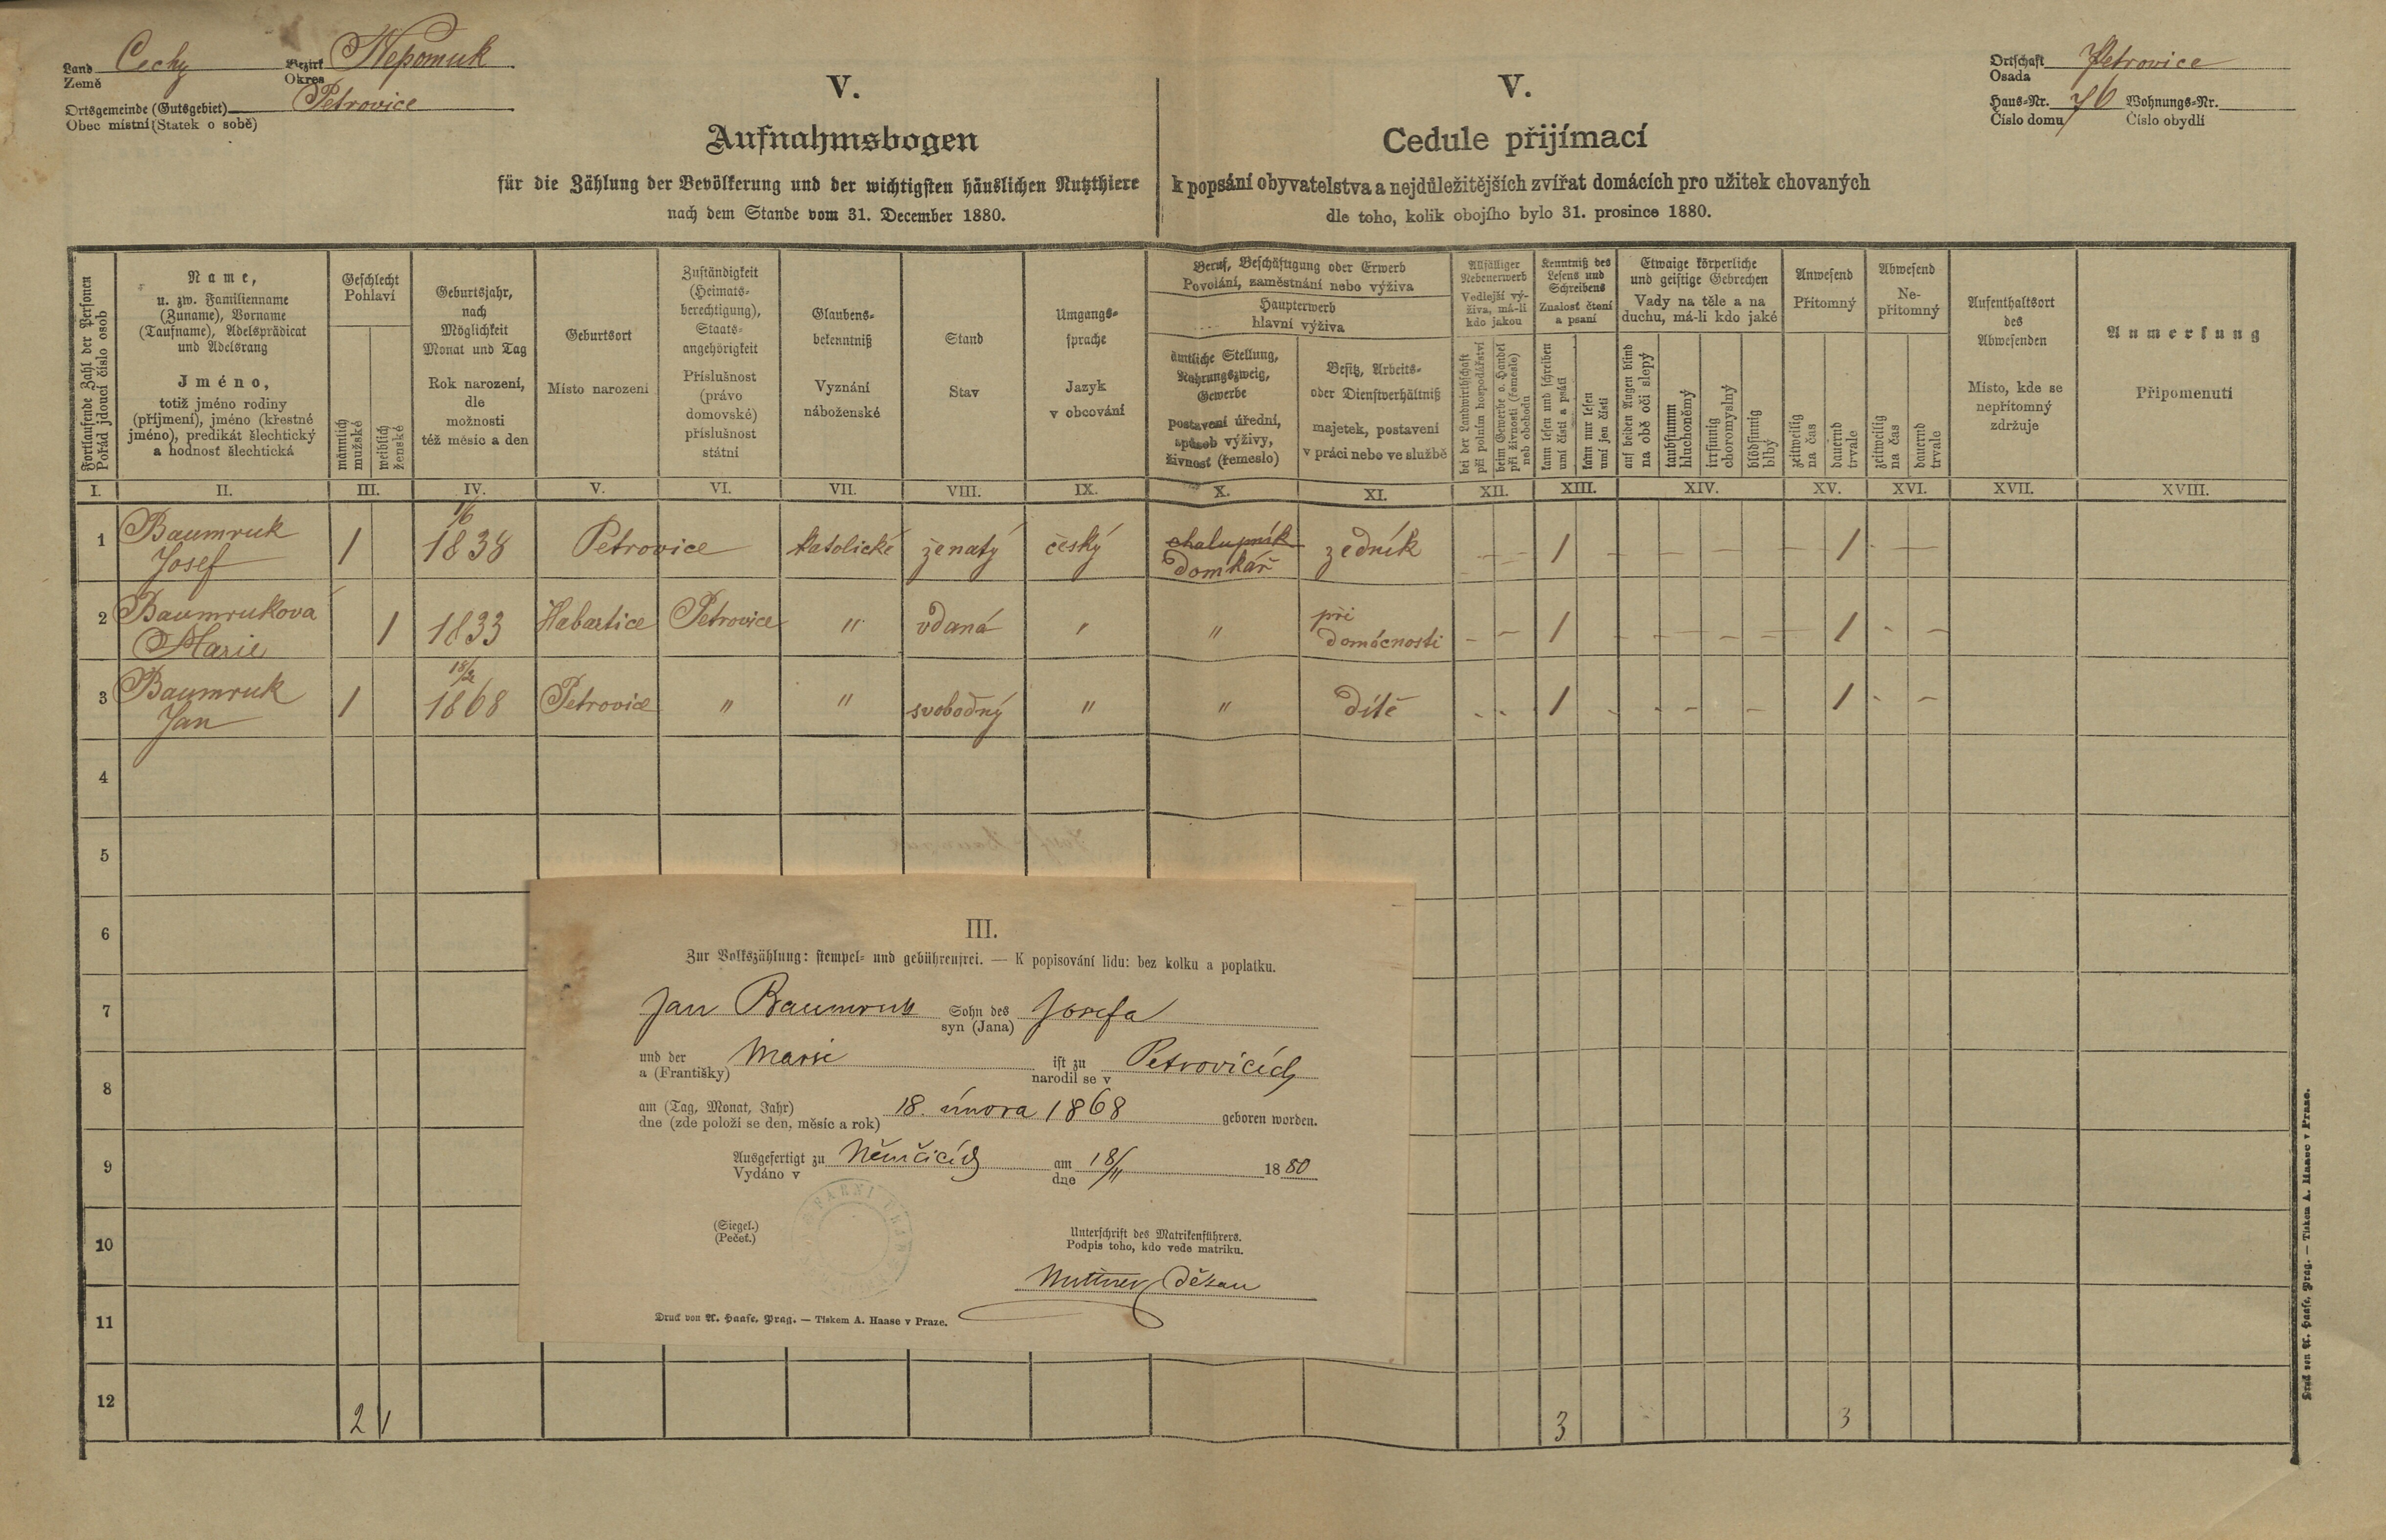 Land Čechy Bezirk Nepomuk
Země Okres
Ortsgemeinde (Gutsgebiet) Petrovice
Obec místní (Statek o sobě)
V.
Aufnahmsbogen
für die Zählung der Bevölkerung und der wichtigsten häuslichen Nutzthiere
nach dem Stande vom 31. December 1880.
V.
Cedule přijímací
k popsání obyvatelstva a nejdůležitějších zvířat domácích pro užitek chovaných
dle toho, kolik obojího bylo 31. prosince 1880.
Ortschaft Petrovice
Osada
Haus-Nr. 76 Wohnungs-Nr.
Číslo domu Číslo obydlí
Fortlaufende Zahl der Personen
Pořád jdoucí číslo osob
Name,
u. zw. Familienname
(Zuname), Vorname
(Taufname), Adelsprädicat
und Adelsrang
Jméno,
totiž jméno rodiny
(příjmení), jméno (křestné
jméno), predikát šlechtický
a hodnost šlechtická
Geschlecht
Pohlaví
männlich
mužské
weiblich
ženské
Geburtsjahr,
nach
Möglichkeit
Monat und Tag
Rok narození,
dle
možnosti
též měsíc a den
Geburtsort
Místo narození
Zuständigkeit
(Heimats-
berechtigung),
Staats-
angehörigkeit
Příslušnost
(právo
domovské)
příslušnost
státní
Glaubens-
bekenntniß
Vyznání
náboženské
Stand
Stav
Umgangs-
sprache
Jazyk
v obcování
Beruf, Beschäftigung oder Erwerb
Povolání, zaměstnání nebo výživa
Haupterwerb
hlavní výživa
ämtliche Stellung,
Nahrungszweig,
Gewerbe
postavení úřední,
způsob výživy,
živnost (řemeslo)
Besitz, Arbeits-
oder Dienstverhältniß
majetek, postavení
v práci nebo ve službě
Allfälliger
Nebenerwerb
Vedlejší vý-
živa, má-li
kdo jakou
bei der Landwirthschaft
při polním hospodářství
beim Gewerbe o. Handel
při živnosti (řemesle)
neb obchodu
Kenntniß des
Lesens und
Schreibens
Znalost čtení
a psaní
kann lesen und schreiben
umí čísti a psáti
kann nur lesen
umí jen čísti
Etwaige körperliche
und geistige Gebrechen
Vady na těle a na
duchu, má-li kdo jaké
auf beiden Augen blind
na obě oči slepý
taubstumm
hluchoněmý
irrsinnig
choromyslný
blödsinnig
blbý
Anwesend
Přítomný
zeitweilig
na čas
dauernd
trvale
Abwesend
Ne-
přítomný
zeitweilig
na čas
dauernd
trvale
Aufenthaltsort
des
Abwesenden
Místo, kde se
nepřítomný
zdržuje
Anmerkung
Připomenutí
I. II. III. IV. V. VI. VII. VIII. IX. X. XI. XII. XIII. XIV. XV. XVI. XVII. XVIII.
1 Baumruk Josef 1 1/6 1838 Petrovice katolické ženatý český chalupník domkář zedník – – 1 – – – – – – 1 – –
2 Baumrukova Marie 1 1833 Habartice Petrovice " vdaná " " při domácnosti – – 1 – – – – – – 1 – –
3 Baumruk Jan 1 18/2 1868 Petrovice " " svobodný " " dítě – – 1 – – – – 1 – –
4
5
6
7
8
9
10
11
12
2 1 3 3
III.
Zur Volkszählung: stempel- und gebührenfrei. — K popisování lidu: bez kolku a poplatku.
Jan Baumruk Sohn des Josefa
syn (Jana)
und der Marie ist zu Petrovicích
a (Františky) narodil se v
am (Tag, Monat, Jahr) 18. února 1868 geboren worden.
dne (zde položí se den, měsíc a rok)
Ausgefertigt zu Němčicích am 18/11 1880
Vydáno v dne
FARNÍ ÚŘAD
(Siegel.)
(Pečeť.)
Unterschrift des Matrikenführers.
Podpis toho, kdo vede matriku.
děkan
Druck von A. Haase, Prag. — Tiskem A. Haase v Praze.
Druck von A. Haase, Prag. — Tiskem A. Haase v Praze.